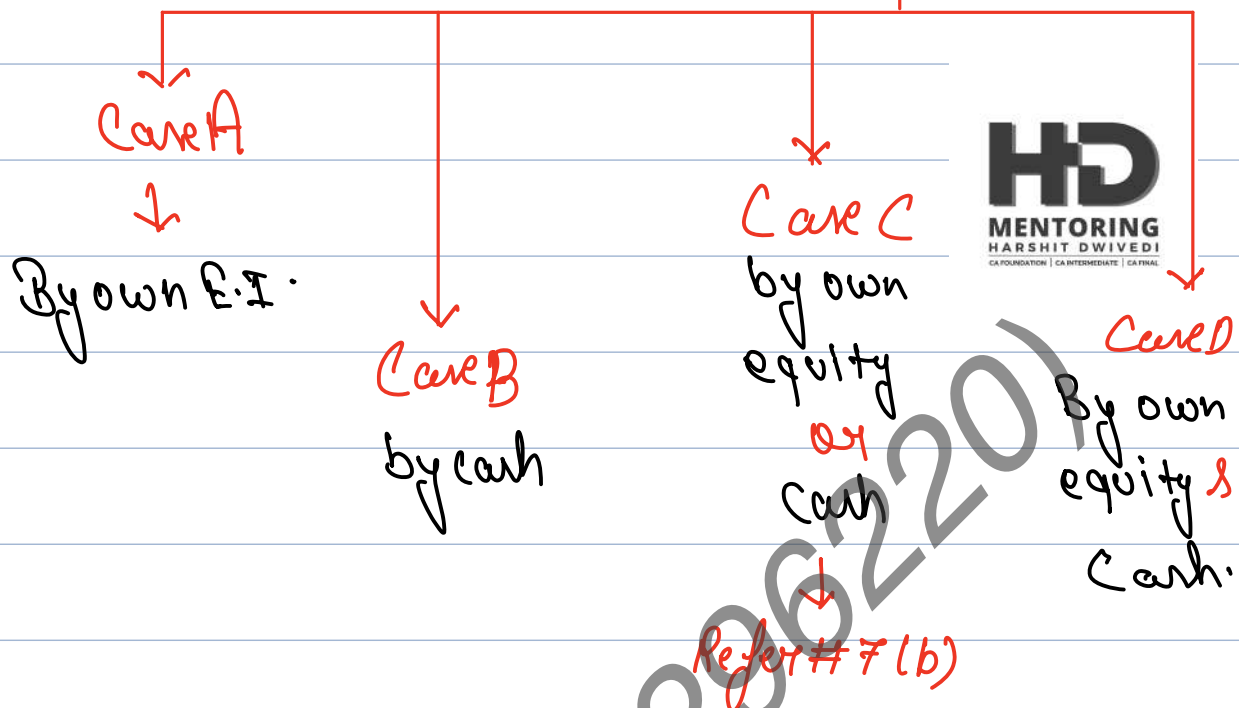 Case A
By own E.I.
Case B
by cash
Case C
by own
equity
or
cash
Refer # 7 (b)
HD
MENTORING
HARSHIT DWIVEDI
CA FOUNDATION | CA INTERMEDIATE | CA FINAL
Case D
By own
equity &
Cash.
96220)